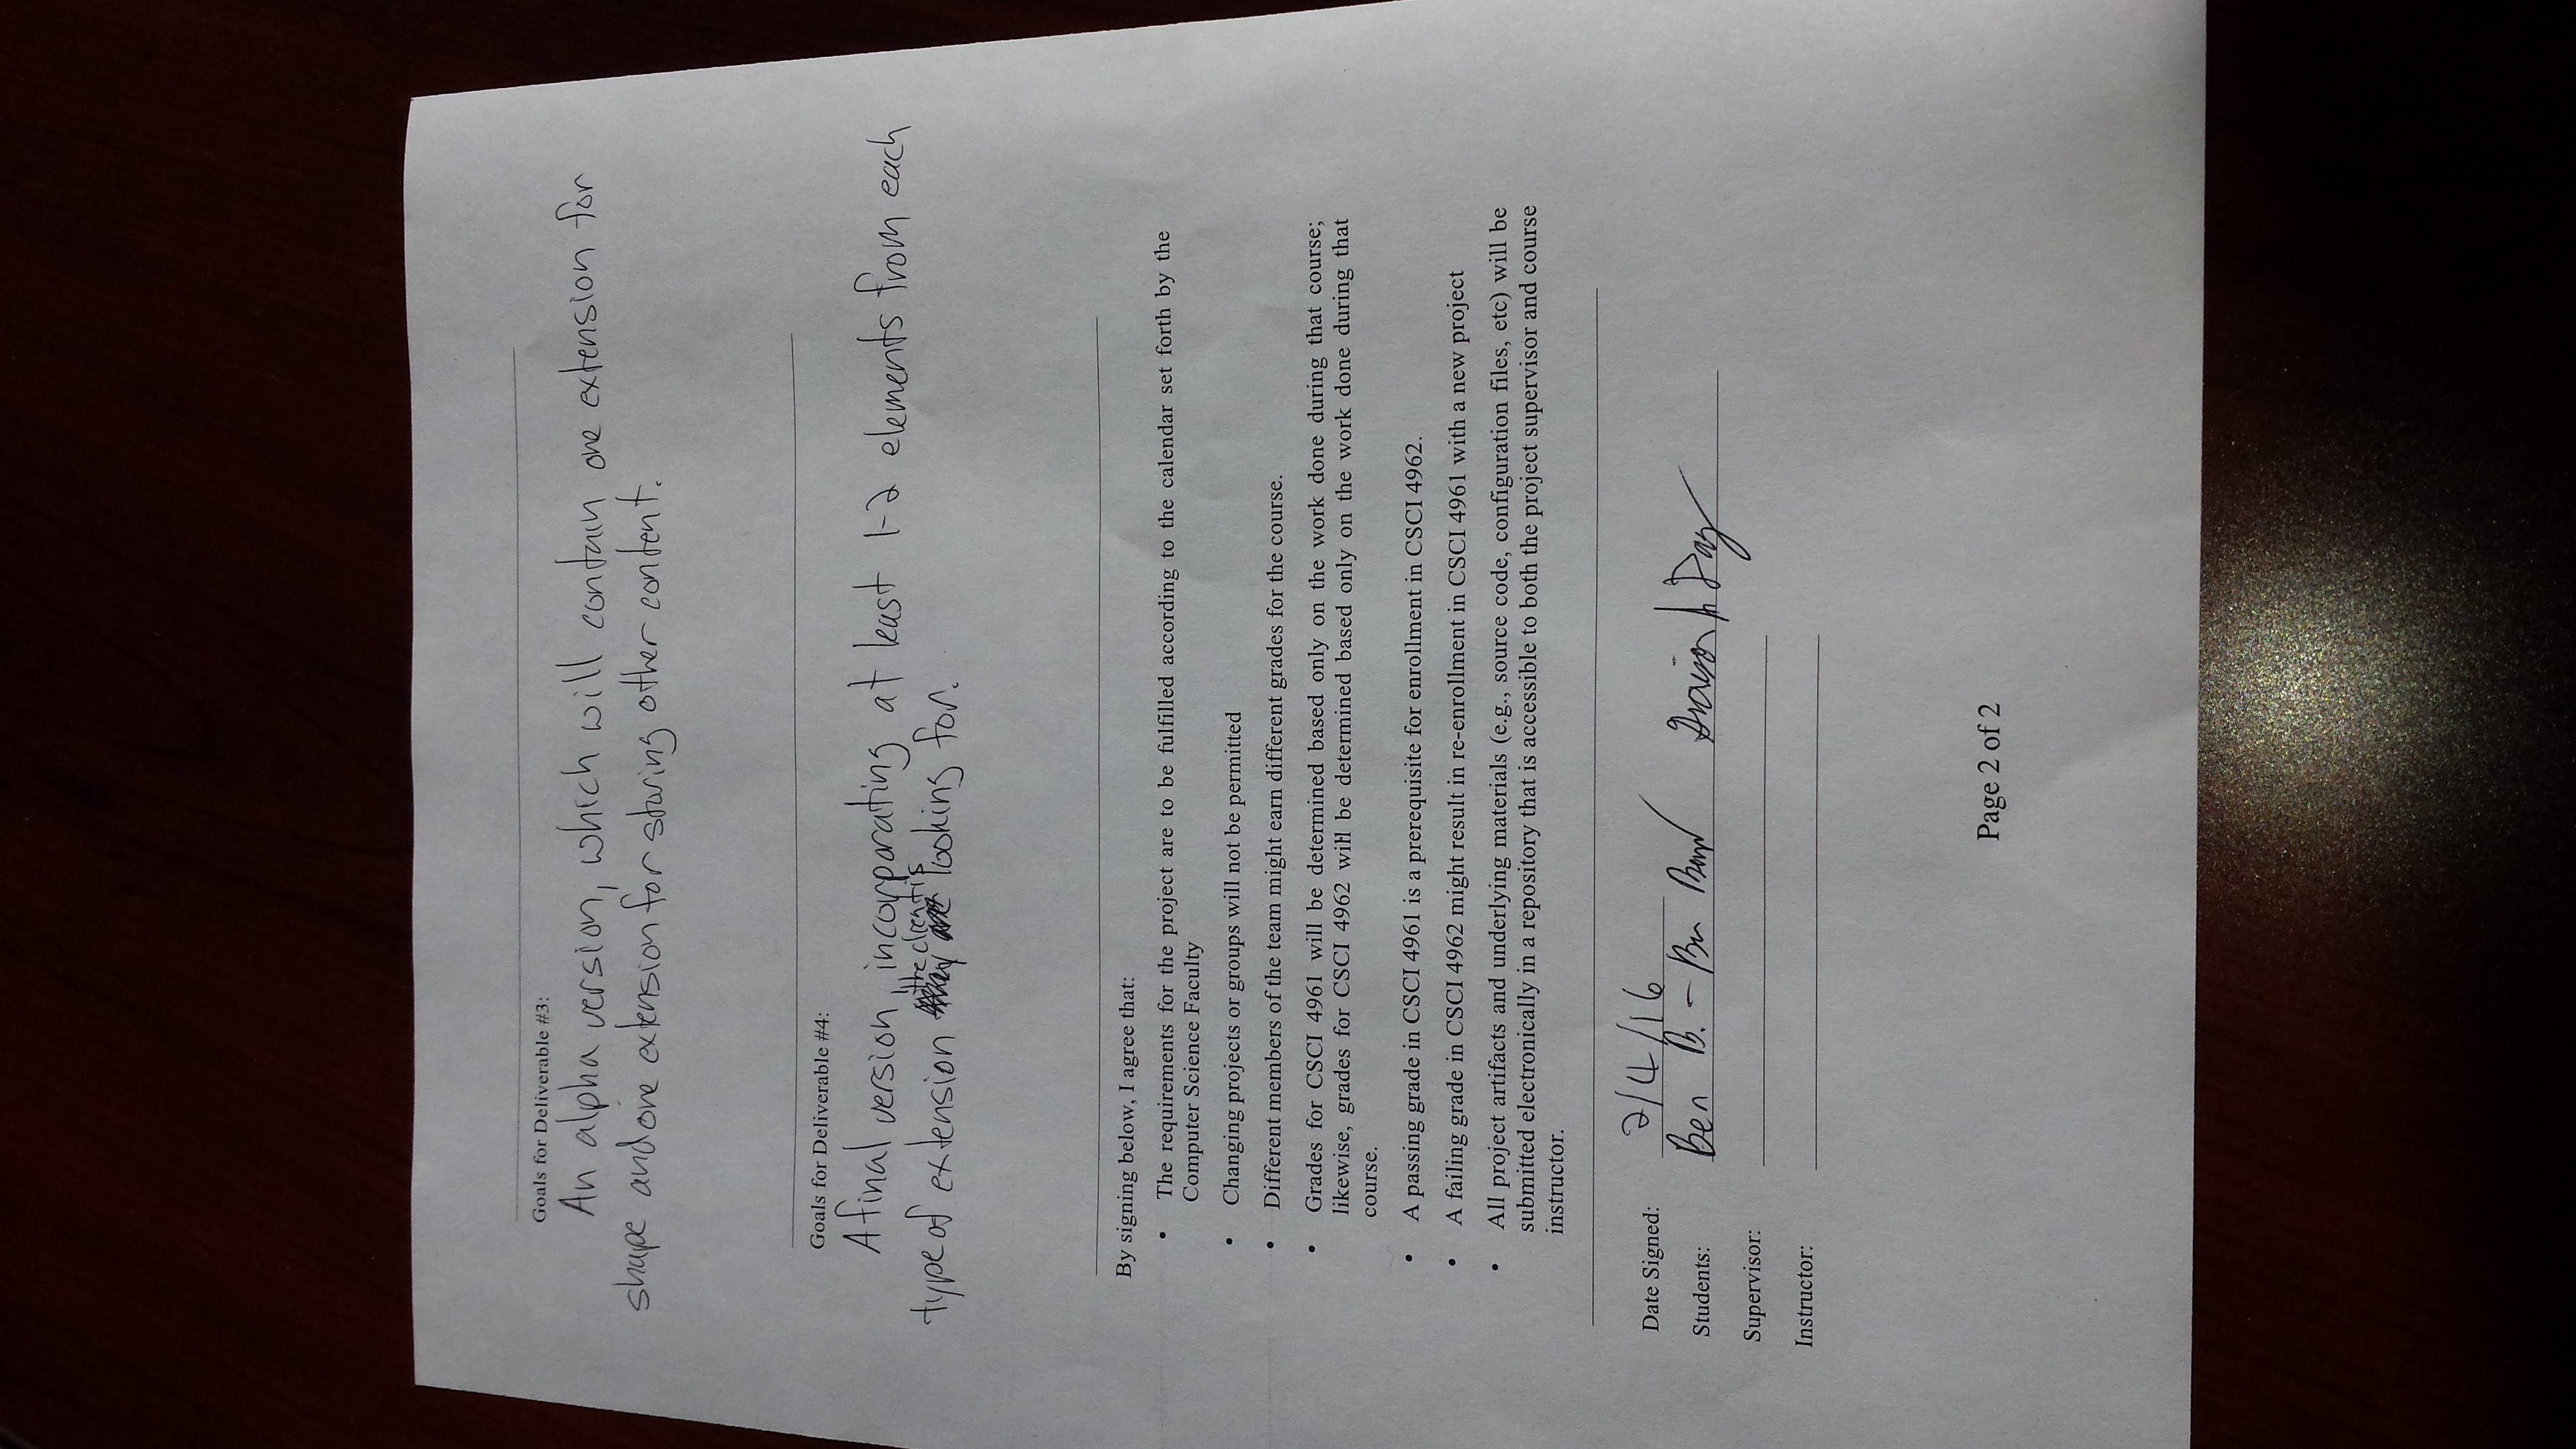 Goals for Deliverable #3:
An alpha version, which will contain one extension for
shape and one extension for storing other content.
Goals for Deliverable #4:
A final version, incorporating at least 1-2 elements from each
the client is
type of extension looking for.
By signing below, I agree that:
• The requirements for the project are to be fulfilled according to the calendar set forth by the
Computer Science Faculty
• Changing projects or groups will not be permitted
• Different members of the team might earn different grades for the course.
• Grades for CSCI 4961 will be determined based only on the work done during that course;
likewise, grades for CSCI 4962 will be determined based only on the work done during that
course.
• A passing grade in CSCI 4961 is a prerequisite for enrollment in CSCI 4962.
• A failing grade in CSCI 4962 might result in re-enrollment in CSCI 4961 with a new project
• All project artifacts and underlying materials (e.g., source code, configuration files, etc) will be
submitted electronically in a repository that is accessible to both the project supervisor and course
instructor.
Date Signed: 2/4/16
Students: Ben B. - Ben Day
Supervisor:
Instructor:
Page 2 of 2